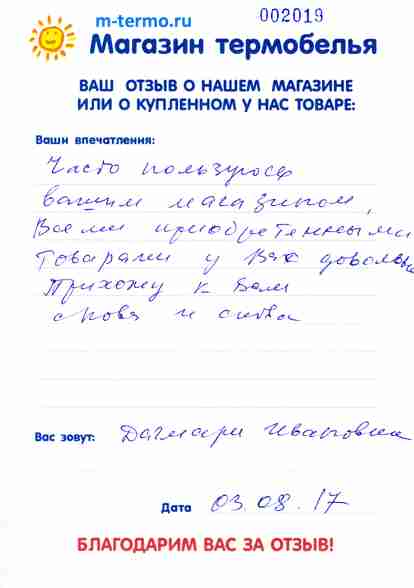 m-termo.ru
002019
Магазин термобелья
ВАШ ОТЗЫВ О НАШЕМ МАГАЗИНЕ
ИЛИ О КУПЛЕННОМ У НАС ТОВАРЕ:
Ваши впечатления:
Часто пользуюсь
вашим магазином,
Всеми приобретенными
товарами у Вас довольны
Прихожу к Вам
снова и снова
Вас зовут: Дагмари Ивановна
Дата 03.08.17
БЛАГОДАРИМ ВАС ЗА ОТЗЫВ!